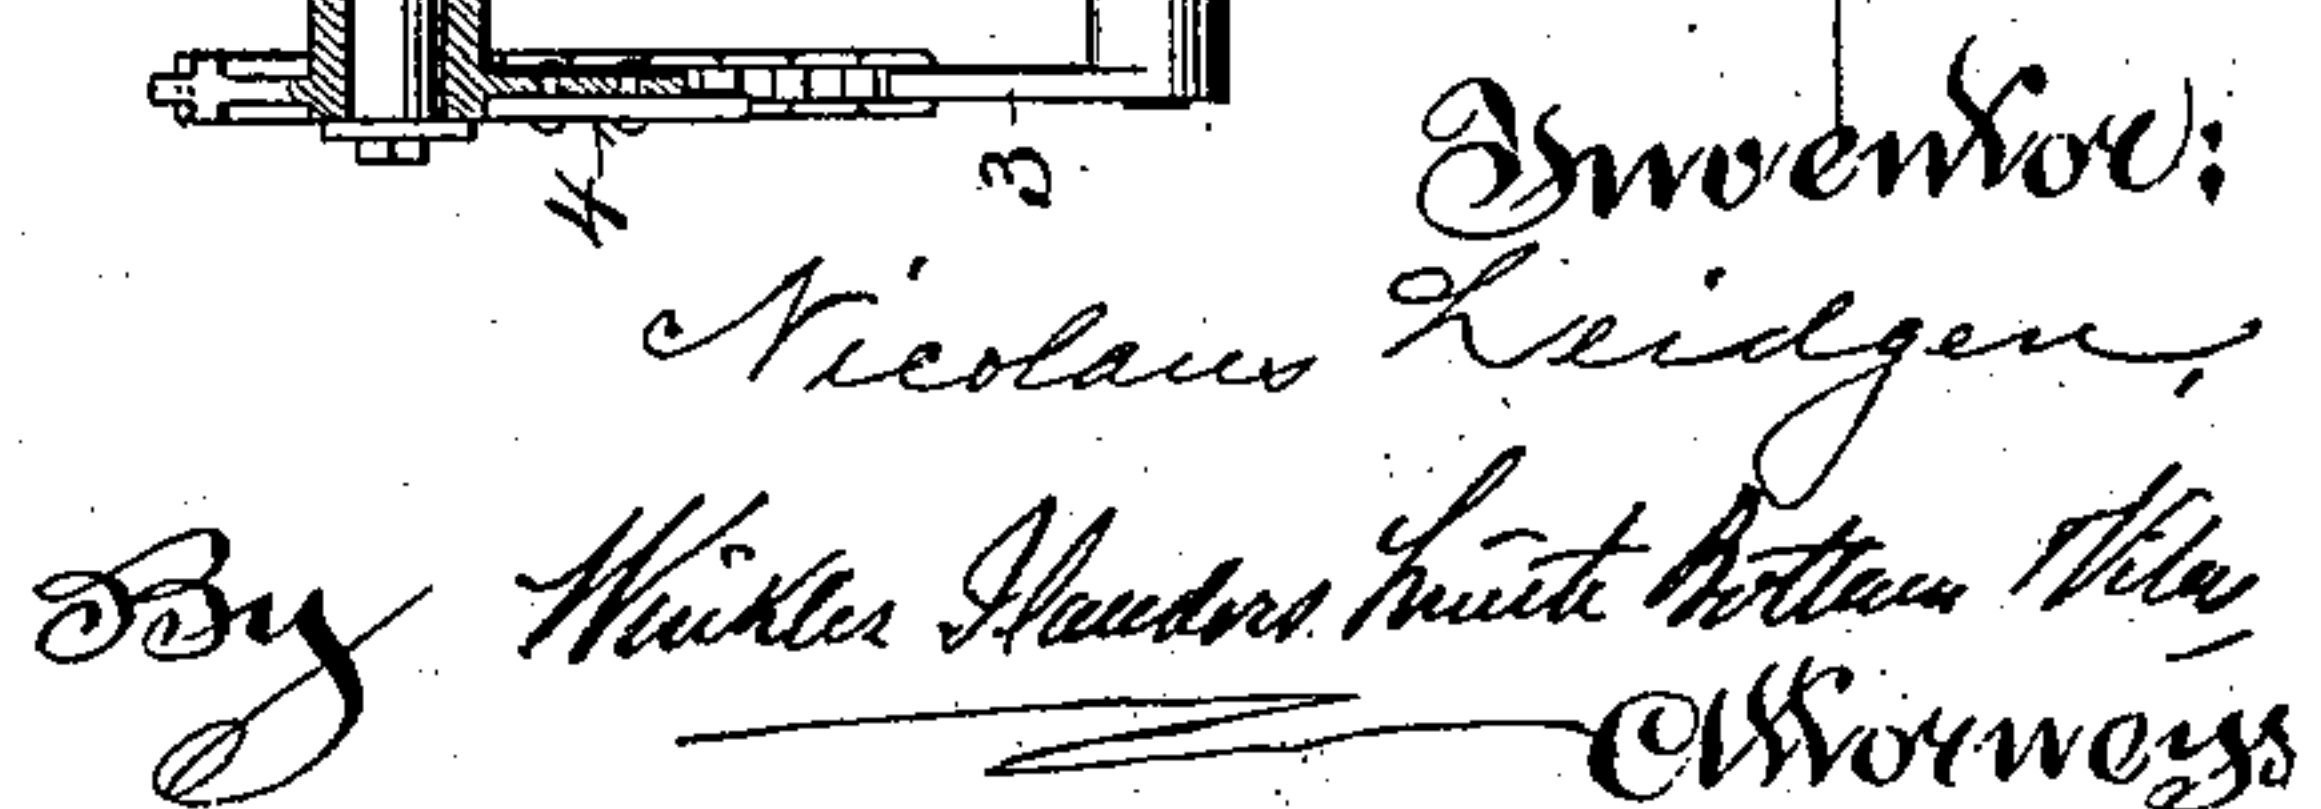 4 3
Inventor:
Nicolaus Leidgen,
By Winkler Flanders Smith Bottum Vilas
Attorneys